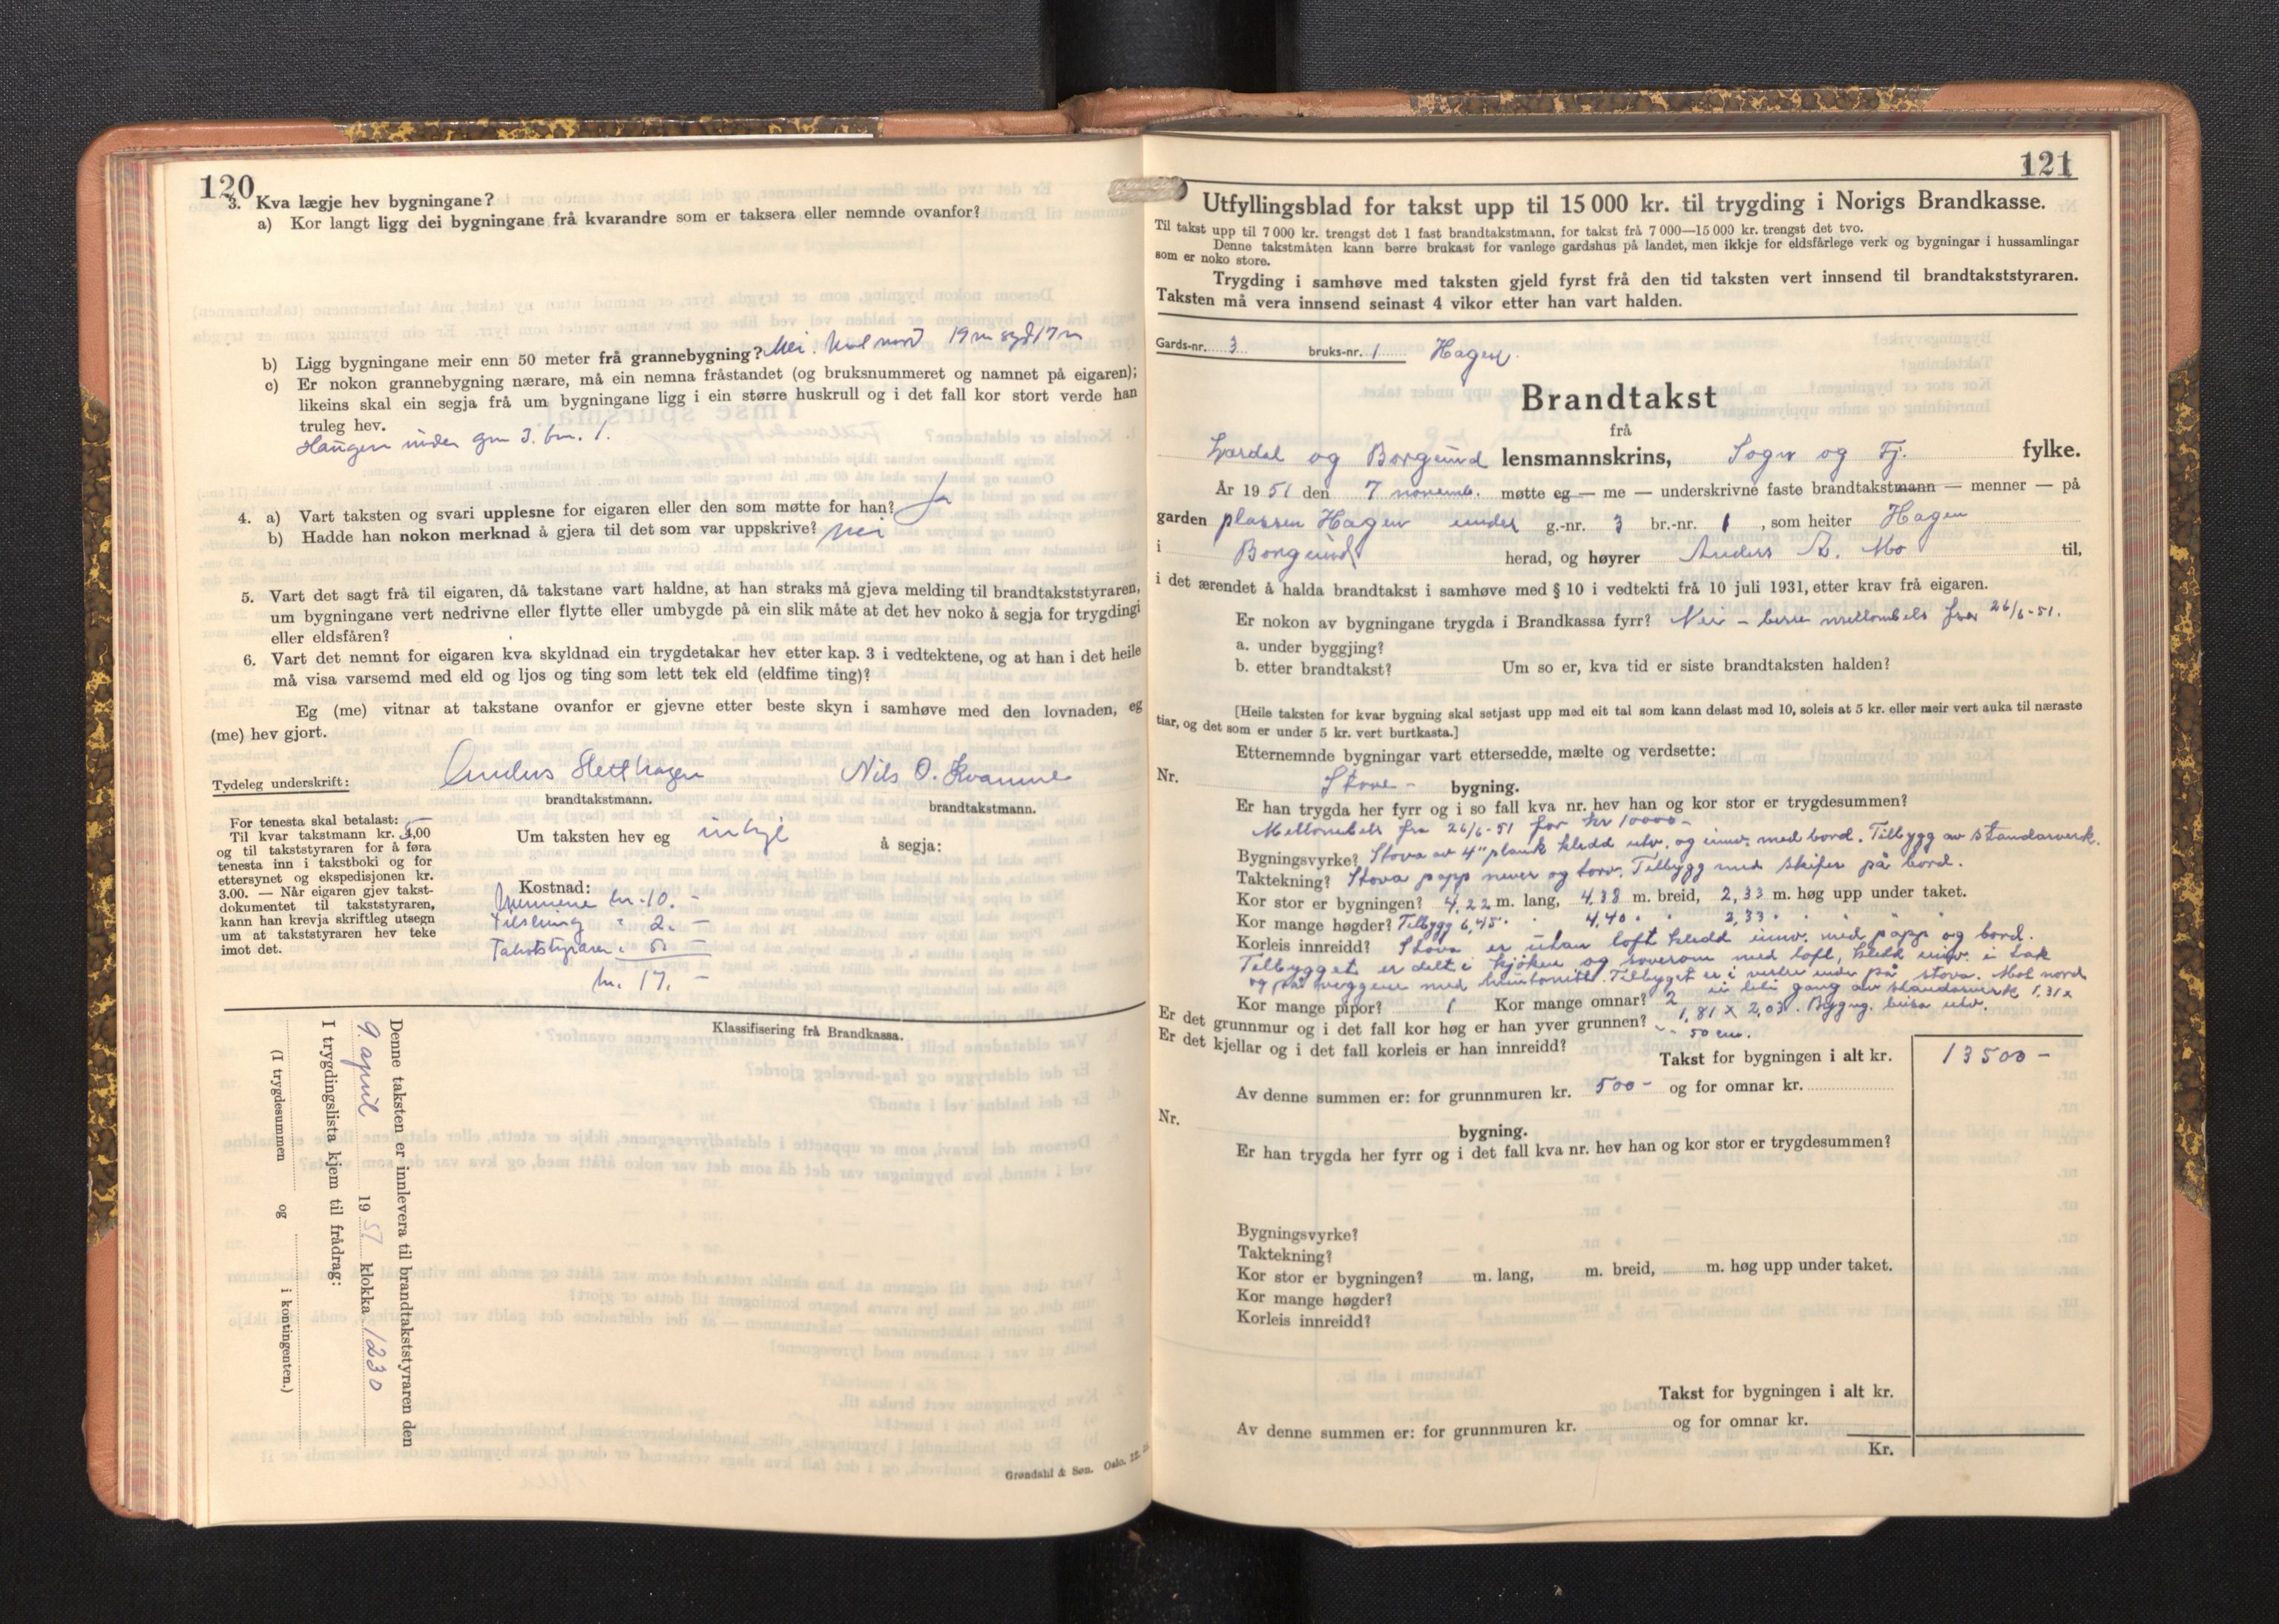 120
3. Kva lægje hev bygningane?
a) Kor langt ligg dei bygningane frå kvarandre som er taksera eller nemnde ovanfor?
b) Ligg bygningane meir enn 50 meter frå grannebygning? Nei. Mot nord 19 m syd 17 m
c) Er nokon grannebygning nærare, må ein nemna fråstandet (og bruksnummeret og namnet på eigaren);
likeins skal ein segja frå um bygningane ligg i ein større huskrull og i det fall kor stort verde han
truleg hev.
Haugen under gnr 3. bnr. 1.
4. a) Vart taksten og svari upplesne for eigaren eller den som møtte for han? Ja
b) Hadde han nokon merknad å gjera til det som var uppskrive? Nei
5. Vart det sagt frå til eigaren, då takstane vart haldne, at han straks må gjeva melding til brandtakststyraren,
um bygningane vert nedrivne eller flytte eller umbygde på ein slik måte at det hev noko å segja for trygdingi
eller eldsfåren?
6. Vart det nemnt for eigaren kva skyldnad ein trygdetakar hev etter kap. 3 i vedtektene, og at han i det heile
må visa varsemd med eld og ljos og ting som lett tek eld (eldfime ting)?
Eg (me) vitnar at takstane ovanfor er gjevne etter beste skyn i samhøve med den lovnaden, eg
(me) hev gjort.
Tydeleg underskrift: Anders Hetthagen Nils O. Kvamme
brandtakstmann. brandtakstmann.
For tenesta skal betalast:
Til kvar takstmann kr. 4,00 5
og til takststyraren for å føra
tenesta inn i takstboki og for
ettersynet og ekspedisjonen kr.
3.00. — Når eigaren gjev takst-
dokumentet til takststyraren,
kann han krevja skriftleg utsegn
um at takststyraren hev teke
imot det.
Um taksten hev eg inkje å segja:
Kostnad:
Mennene kr. 10. -
Tilsening " 2. -
Takststyraren " 5 -
kr. 17. -
Klassifisering frå Brandkassa.
Denne taksten er innlevera til brandtakststyraren den
9. april 1951 klokka 1230
I trygdingslista kjem til frådrag:
(I trygdesummen og i kontingenten.)
Grøndahl & Søn. Oslo.
121
Utfyllingsblad for takst upp til 15 000 kr. til trygding i Norigs Brandkasse.
Til takst upp til 7 000 kr. trengst det 1 fast brandtakstmann, for takst frå 7 000—15 000 kr. trengst det tvo.
Denne takstmåten kann berre brukast for vanlege gardshus på landet, men ikkje for eldsfårlege verk og bygningar i hussamlingar
som er noko store.
Trygding i samhøve med taksten gjeld fyrst frå den tid taksten vert innsend til brandtakststyraren.
Taksten må vera innsend seinast 4 vikor etter han vart halden.
Gards-nr. 3 bruks-nr. 1 Hagen.
Brandtakst
frå
Lærdal og Borgund lensmannskrins, Sogn og Fj. fylke.
År 1951 den 7 novemb. møtte eg — me — underskrivne faste brandtakstmann — menner — på
garden plassen Hagen under g.-nr. 3 br.-nr. 1, som heiter Hagen
i Borgund herad, og høyrer Anders A. Mo til,
i det ærendet å halda brandtakst i samhøve med § 10 i vedtekti frå 10 juli 1931, etter krav frå eigaren.
Er nokon av bygningane trygda i Brandkassa fyrr? Nei - berre mellombels frå 26/6-51.
a. under byggjing?
b. etter brandtakst? Um so er, kva tid er siste brandtaksten halden?
[Heile taksten for kvar bygning skal setjast upp med eit tal som kann delast med 10, soleis at 5 kr. eller meir vert auka til næraste
tiar, og det som er under 5 kr. vert burtkasta.]
Etternemnde bygningar vart ettersedde, mælte og verdsette:
Nr. Stove - bygning.
Er han trygda her fyrr og i so fall kva nr. hev han og kor stor er trygdesummen?
Mellombels frå 26/6-51 for kr 10000 -
Bygningsvyrke? Stova av 4" plank kledd utv. og innv. med bord. Tilbygg av standarverk.
Taktekning? Stova papp never og torv. Tilbygg med skifer på bord.
Kor stor er bygningen? 4,22 m. lang, 4,38 m. breid, 2,33 m. høg upp under taket.
Kor mange høgder? Tilbygg 6,45 " 4,40 " 2,33 "
Korleis innreidd? Stova er utan loft kledd innv. med papp og bord.
Tilbygget er delt i kjøken og soverom med loft, kledd innv. i tak
og på veggene med huntonitt. Tilbygget er i vestre ende på stova. Mot nord
ein liten gang av standarverk 1,31 x
Kor mange pipor? 1 Kor mange omnar? 2 1,81 x 2,03. Bygng. beisa utv.
Er det grunnmur og i det fall kor høg er han yver grunnen? 50 cm.
Er det kjellar og i det fall korleis er han innreidd?
Takst for bygningen i alt kr. 13500 -
Av denne summen er: for grunnmuren kr. 500 - og for omnar kr.
Nr. bygning.
Er han trygda her fyrr og i det fall kva nr. hev han og kor stor er trygdesummen?
Bygningsvyrke?
Taktekning?
Kor stor er bygningen? m. lang, m. breid, m. høg upp under taket.
Kor mange høgder?
Korleis innreidd?
Takst for bygningen i alt kr.
Av denne summen er: for grunnmuren kr. og for omnar kr.
Kr.